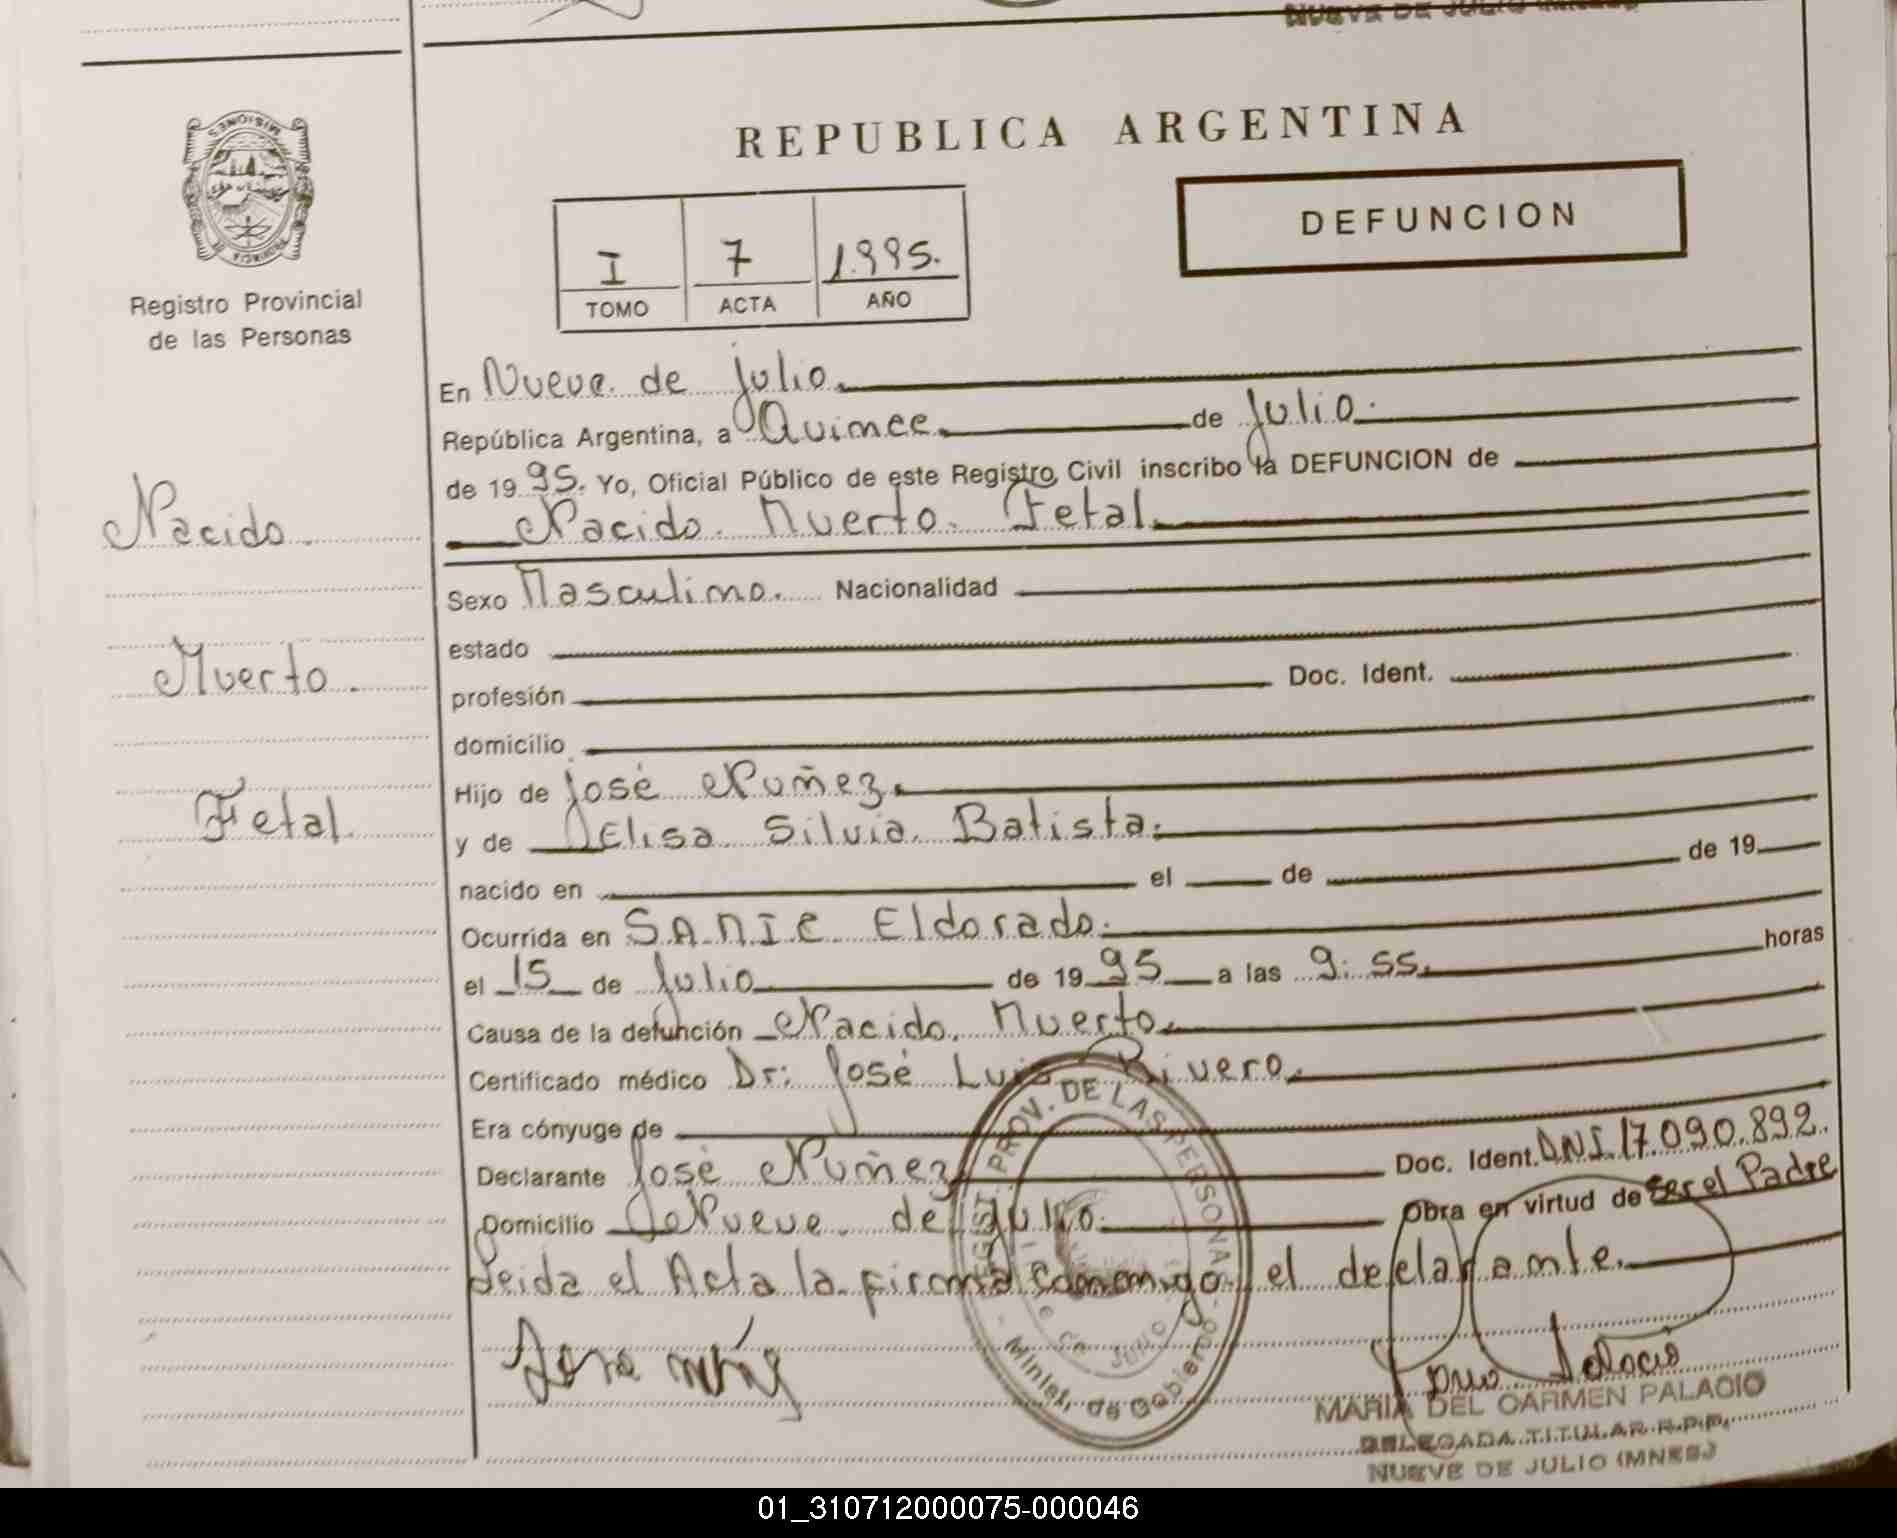 NUEVE DE JULIO (MNES)
MISIONES
PROVINCIA DE
Registro Provincial
de las Personas
REPUBLICA ARGENTINA
I 7 1.995.
TOMO ACTA AÑO
DEFUNCION
En Nueve de julio.
República Argentina, a Quince de julio.
de 19 95. Yo, Oficial Público de este Registro Civil inscribo la DEFUNCION de
Nacido. Muerto. Fetal.
Nacido.
Muerto.
Fetal.
Sexo Masculino. Nacionalidad
estado
profesión Doc. Ident.
domicilio
Hijo de José Nuñez.
y de Elisa Silvia. Batista.
nacido en el de de 19
Ocurrida en S.A.M.I.C. Eldorado.
el 15 de Julio de 19 95 a las 9:55. horas
Causa de la defunción Nacido. Muerto.
Certificado médico Dr: José Luis Rivero.
Era cónyuge de
Declarante José Nuñez Doc. Ident. DNI.17.090.892.
Domicilio Nueve de Julio. Obra en virtud de ser el Padre
Leida el Acta la firma conmigo el declarante.
REGIST. PROV. DE LAS PERSONAS
Minist. de Gobierno
MARIA DEL CARMEN PALACIO
DELEGADA TITULAR R.P.P.
NUEVE DE JULIO (MNES)
01_310712000075-000046